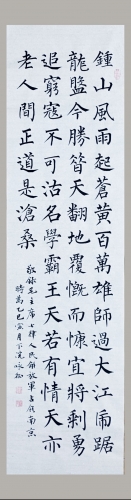 鍾山風雨起蒼黄百萬雄師過大江虎踞
龍盤今勝昔天翻地覆慨而慷宜將剩勇
追窮寇不可沽名學霸王天若有情天亦
老人間正道是滄桑
敬錄毛主席七律人民解放軍占領南京
時為乙巳寅月